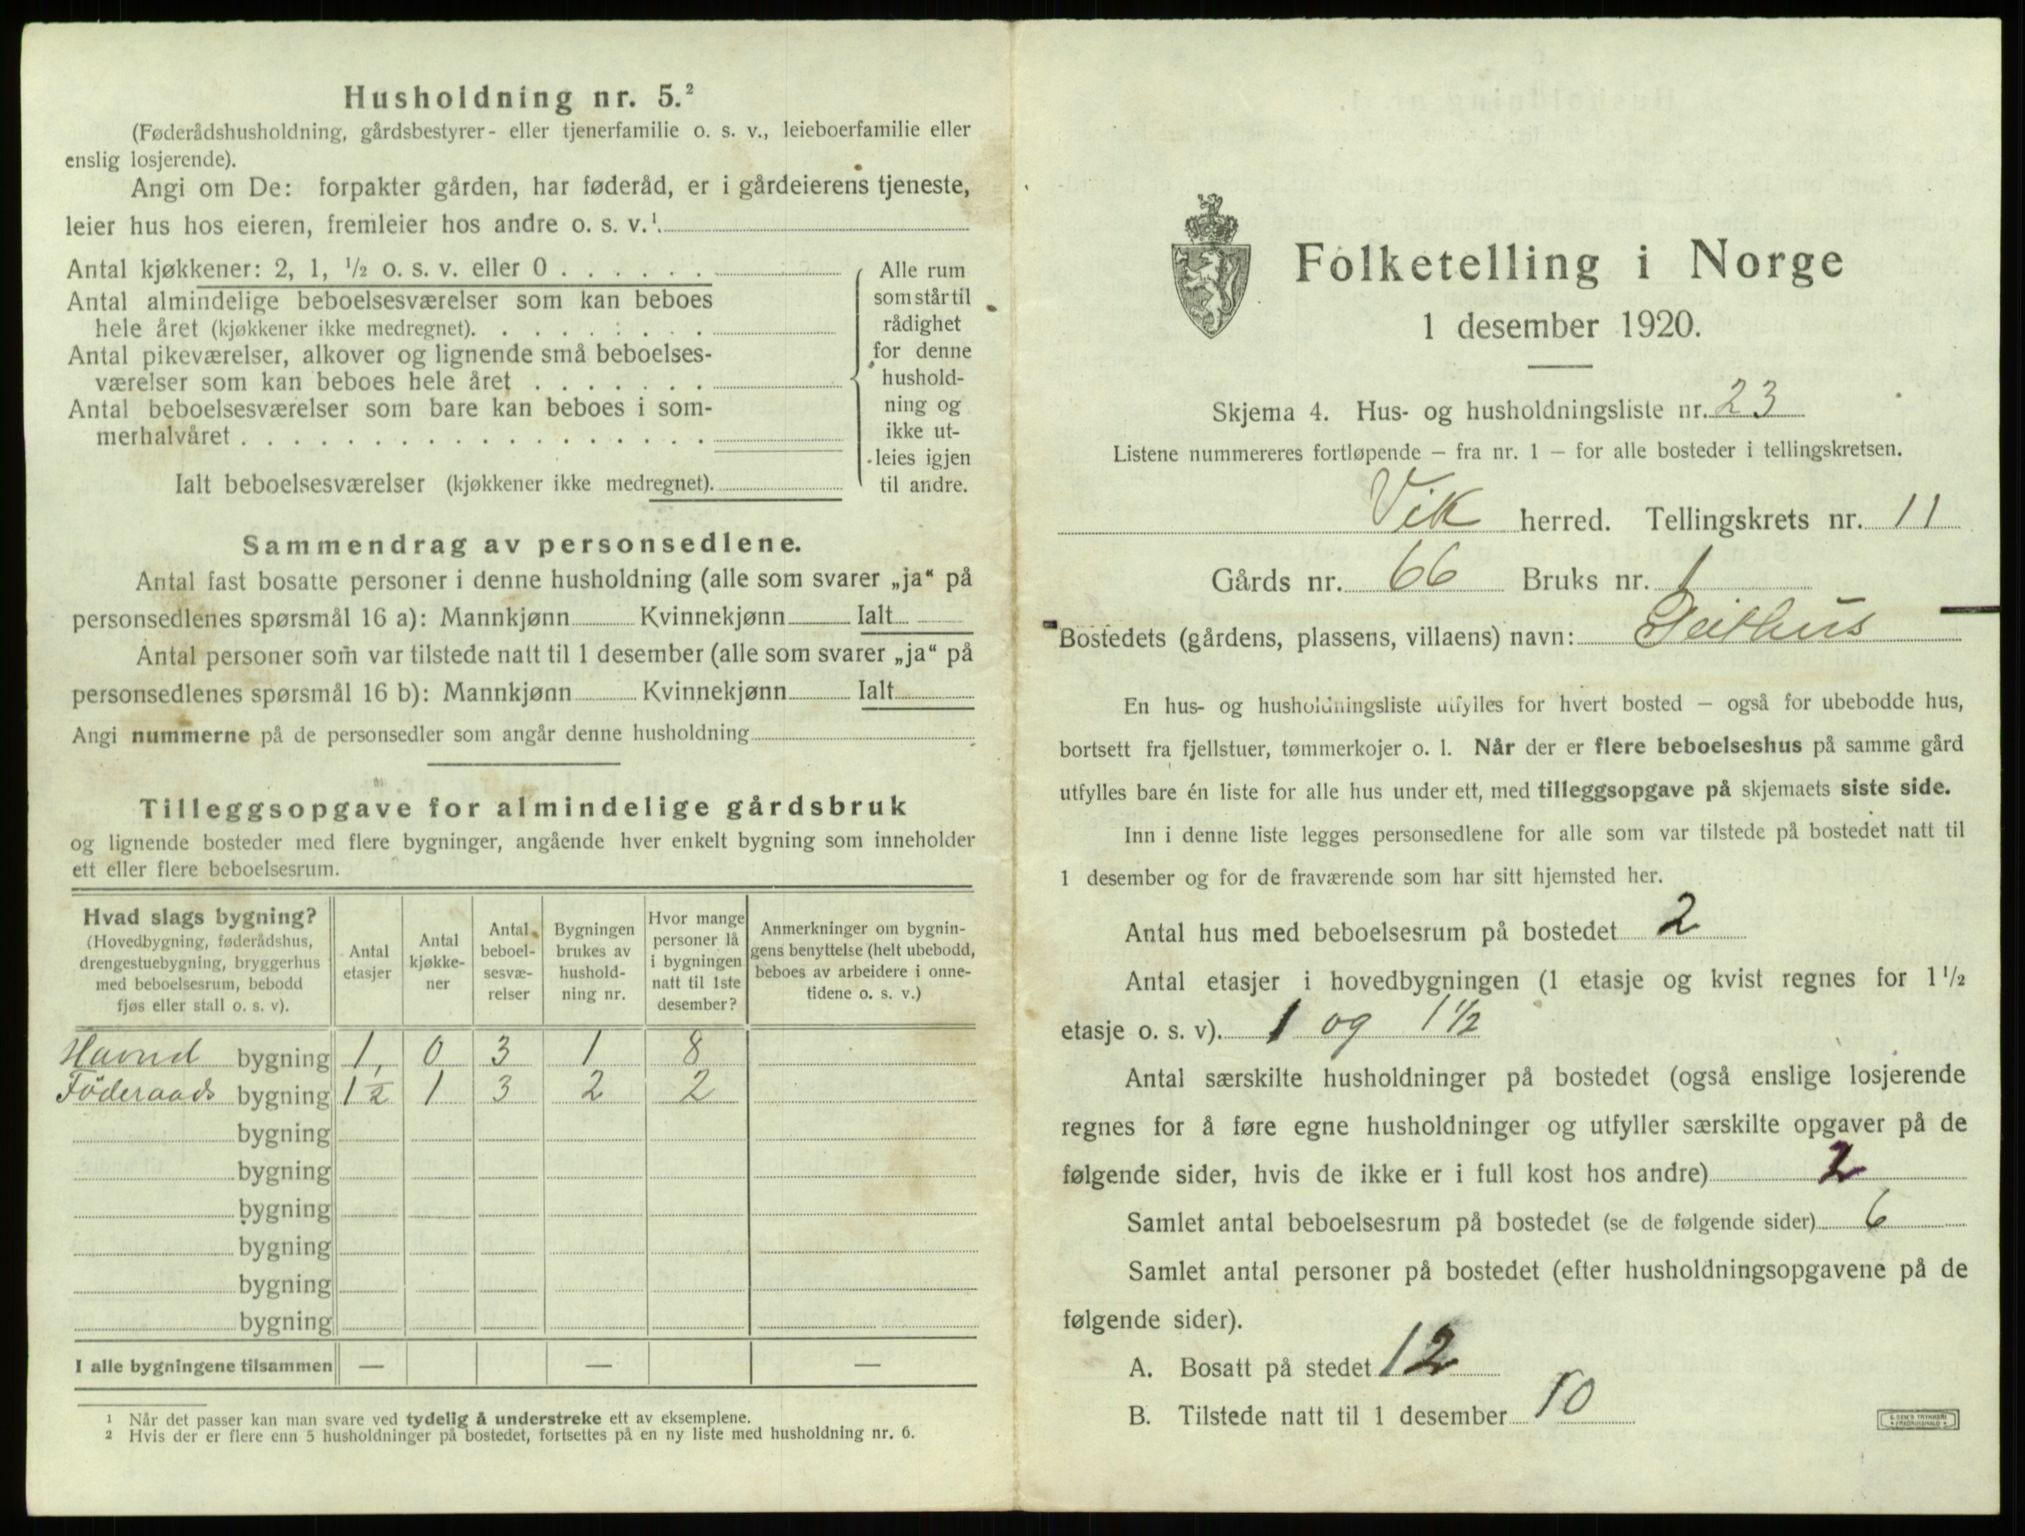 Husholdning nr. 5.²
(Føderådshusholdning, gårdsbestyrer- eller tjenerfamilie o. s. v., leieboerfamilie eller
enslig losjerende).
Angi om De: forpakter gården, har føderåd, er i gårdeierens tjeneste,
leier hus hos eieren, fremleier hos andre o. s. v.¹
Antal kjøkkener: 2, 1, ½ o. s. v. eller 0 . . . . . .
Antal almindelige beboelsesværelser som kan beboes
hele året (kjøkkener ikke medregnet). . . . . . . . .
Antal pikeværelser, alkover og lignende små beboelses-
værelser som kan beboes hele året . . . . . . .
Antal beboelsesværelser som bare kan beboes i som-
merhalvåret . . . . . . . . . . . . . . . . . .
Ialt beboelsesværelser (kjøkkener ikke medregnet).
Alle rum
som står til
rådighet
for denne
hushold-
ning og
ikke ut-
leies igjen
til andre.
Sammendrag av personsedlene.
Antal fast bosatte personer i denne husholdning (alle som svarer „ja“ på
personsedlenes spørsmål 16 a): Mannkjønn Kvinnekjønn Ialt
Antal personer som var tilstede natt til 1 desember (alle som svarer „ja“ på
personsedlenes spørsmål 16 b): Mannkjønn Kvinnekjønn Ialt
Angi nummerne på de personsedler som angår denne husholdning
Tilleggsopgave for almindelige gårdsbruk
og lignende bosteder med flere bygninger, angående hver enkelt bygning som inneholder
ett eller flere beboelsesrum.
Hvad slags bygning?
(Hovedbygning, føderådshus,
drengestuebygning, bryggerhus
med beboelsesrum, bebodd
fjøs eller stall o. s. v).
Antal
etasjer
Antal
kjøkke-
ner
Antal
beboel-
sesvæ-
relser
Bygningen
brukes av
hushold-
ning nr.
Hvor mange
personer lå
i bygningen
natt til 1ste
desember?
Anmerkninger om bygnin-
gens benyttelse (helt ubebodd,
beboes av arbeidere i onne-
tidene o. s. v.)
Havud bygning 1, 0 3 1 8
Föderaads bygning 1½ 1 3 2 2
bygning
bygning
bygning
bygning
bygning
bygning
I alle bygningene tilsammen — — —
¹ Når det passer kan man svare ved tydelig å understreke ett av eksemplene.
² Hvis der er flere enn 5 husholdninger på bostedet, fortsettes på en ny liste med husholdning nr. 6.
Folketelling i Norge
1 desember 1920.
Skjema 4. Hus- og husholdningsliste nr. 23
Listene nummereres fortløpende – fra nr. 1 – for alle bosteder i tellingskretsen.
Vik herred. Tellingskrets nr. 11
Gårds nr. 66 Bruks nr. 1
Bostedets (gårdens, plassens, villaens) navn: Seithus
En hus- og husholdningsliste utfylles for hvert bosted – også for ubebodde hus,
bortsett fra fjellstuer, tømmerkojer o. l. Når der er flere beboelseshus på samme gård
utfylles bare én liste for alle hus under ett, med tilleggsopgave på skjemaets siste side.
Inn i denne liste legges personsedlene for alle som var tilstede på bostedet natt til
1 desember og for de fraværende som har sitt hjemsted her.
Antal hus med beboelsesrum på bostedet 2
Antal etasjer i hovedbygningen (1 etasje og kvist regnes for 1½
etasje o. s. v). 1 og 1½
Antal særskilte husholdninger på bostedet (også enslige losjerende
regnes for å føre egne husholdninger og utfyller særskilte opgaver på de
følgende sider, hvis de ikke er i full kost hos andre) 2
Samlet antal beboelsesrum på bostedet (se de følgende sider) 6
Samlet antal personer på bostedet (efter husholdningsopgavene på de
følgende sider).
A. Bosatt på stedet 12
B. Tilstede natt til 1 desember 10